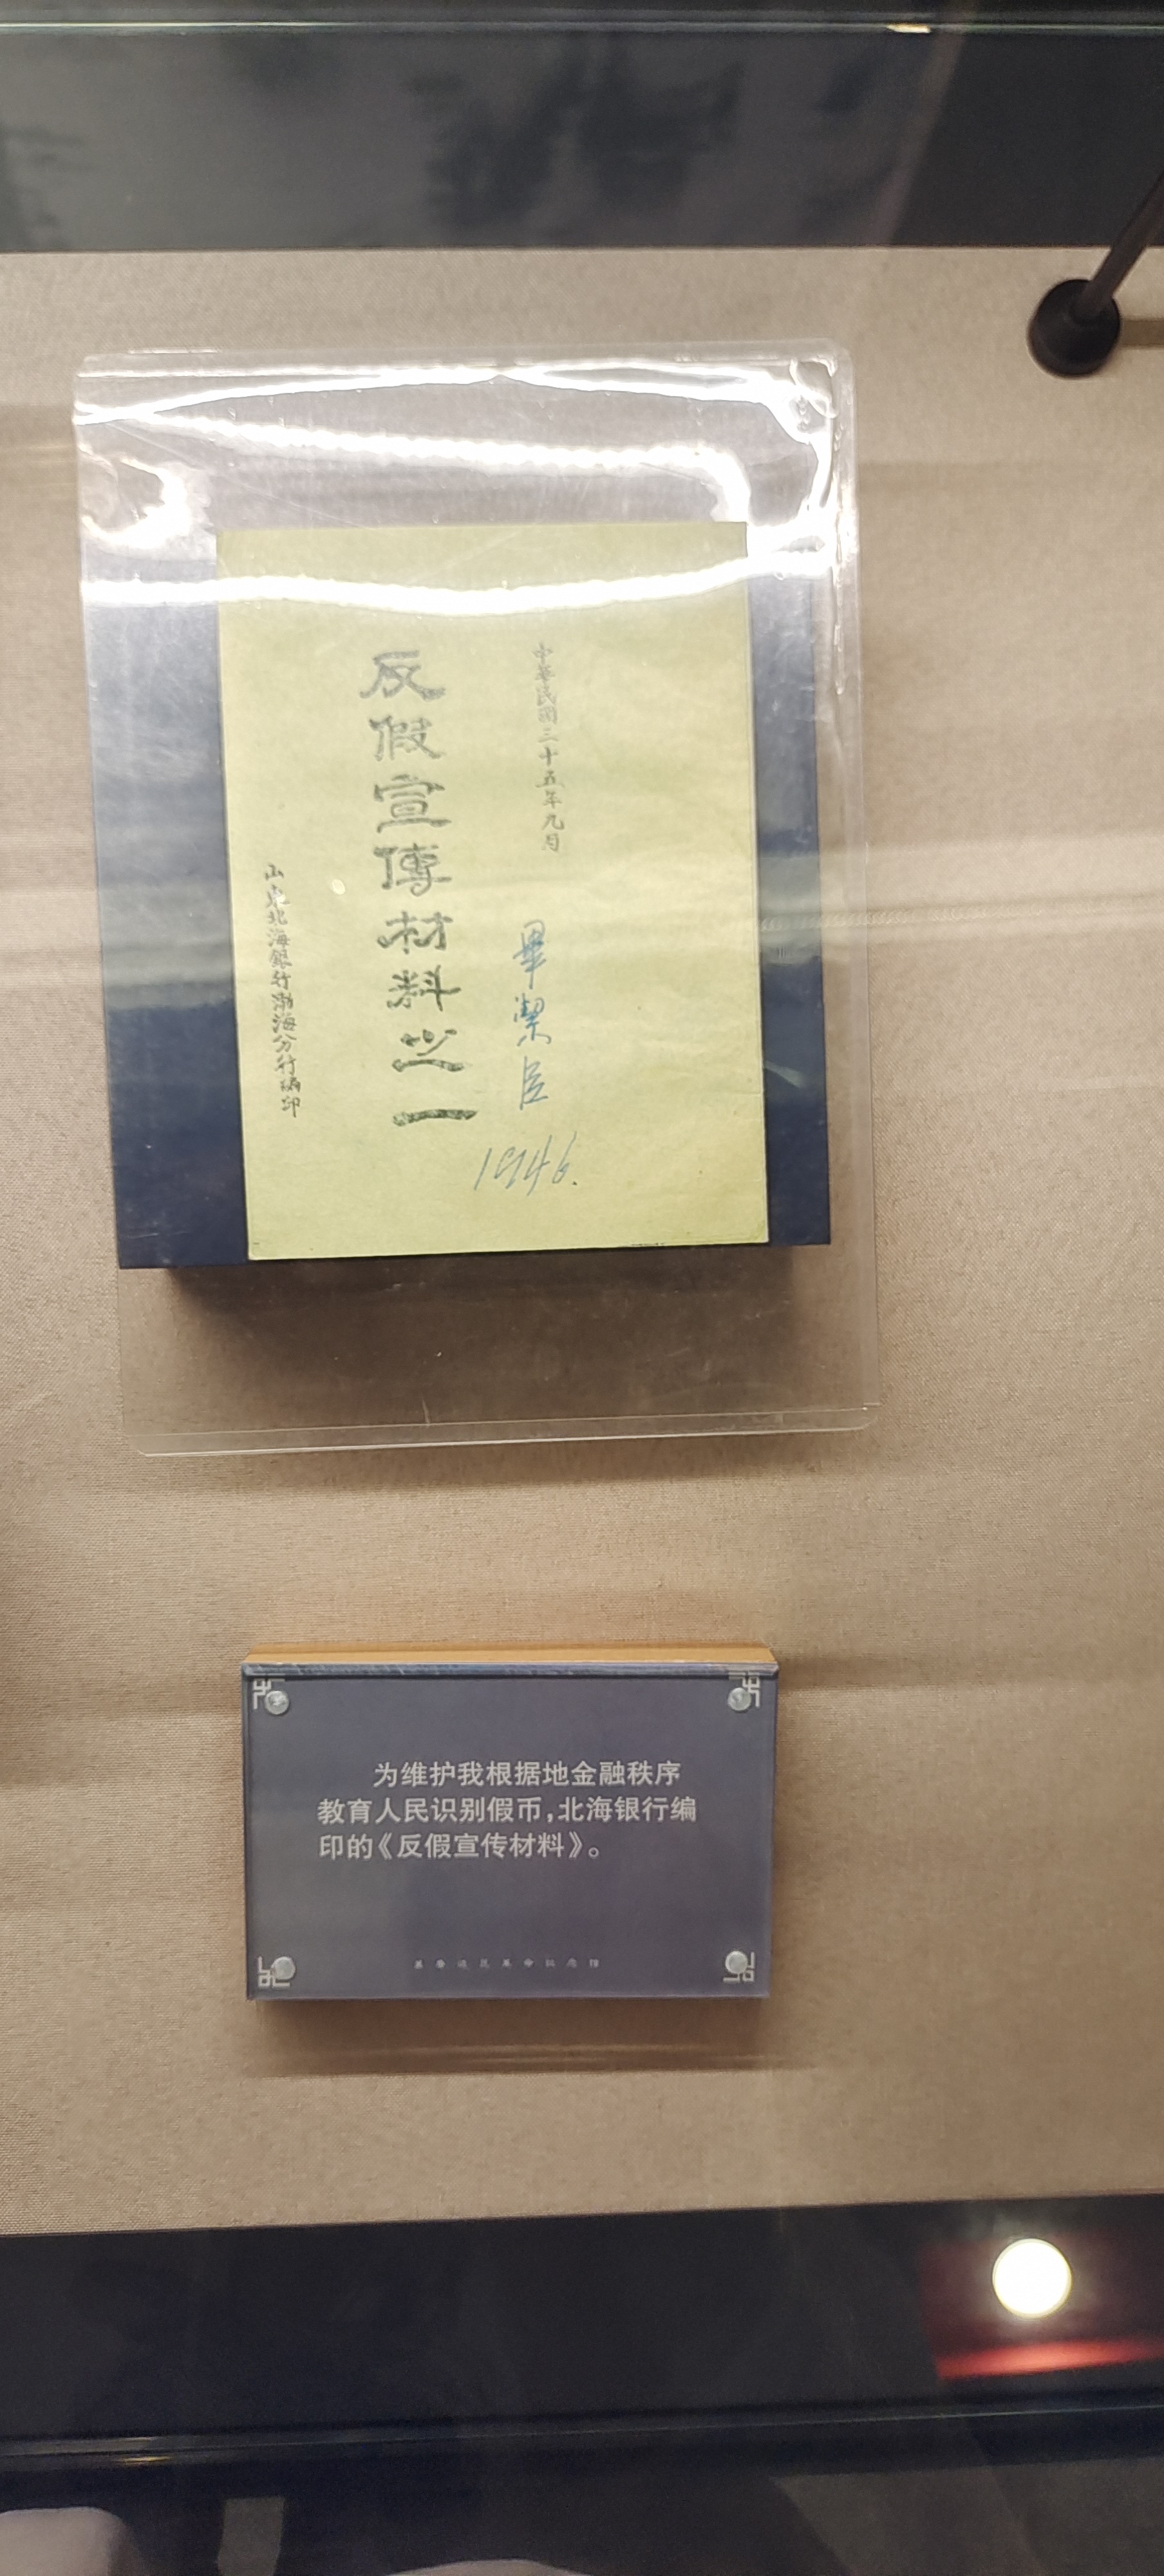 中華民國三十五年九月
畢潔臣
1946.
反假宣傳材料之一
山東北海銀行渤海分行編印
为维护我根据地金融秩序
教育人民识别假币,北海银行编
印的《反假宣传材料》。